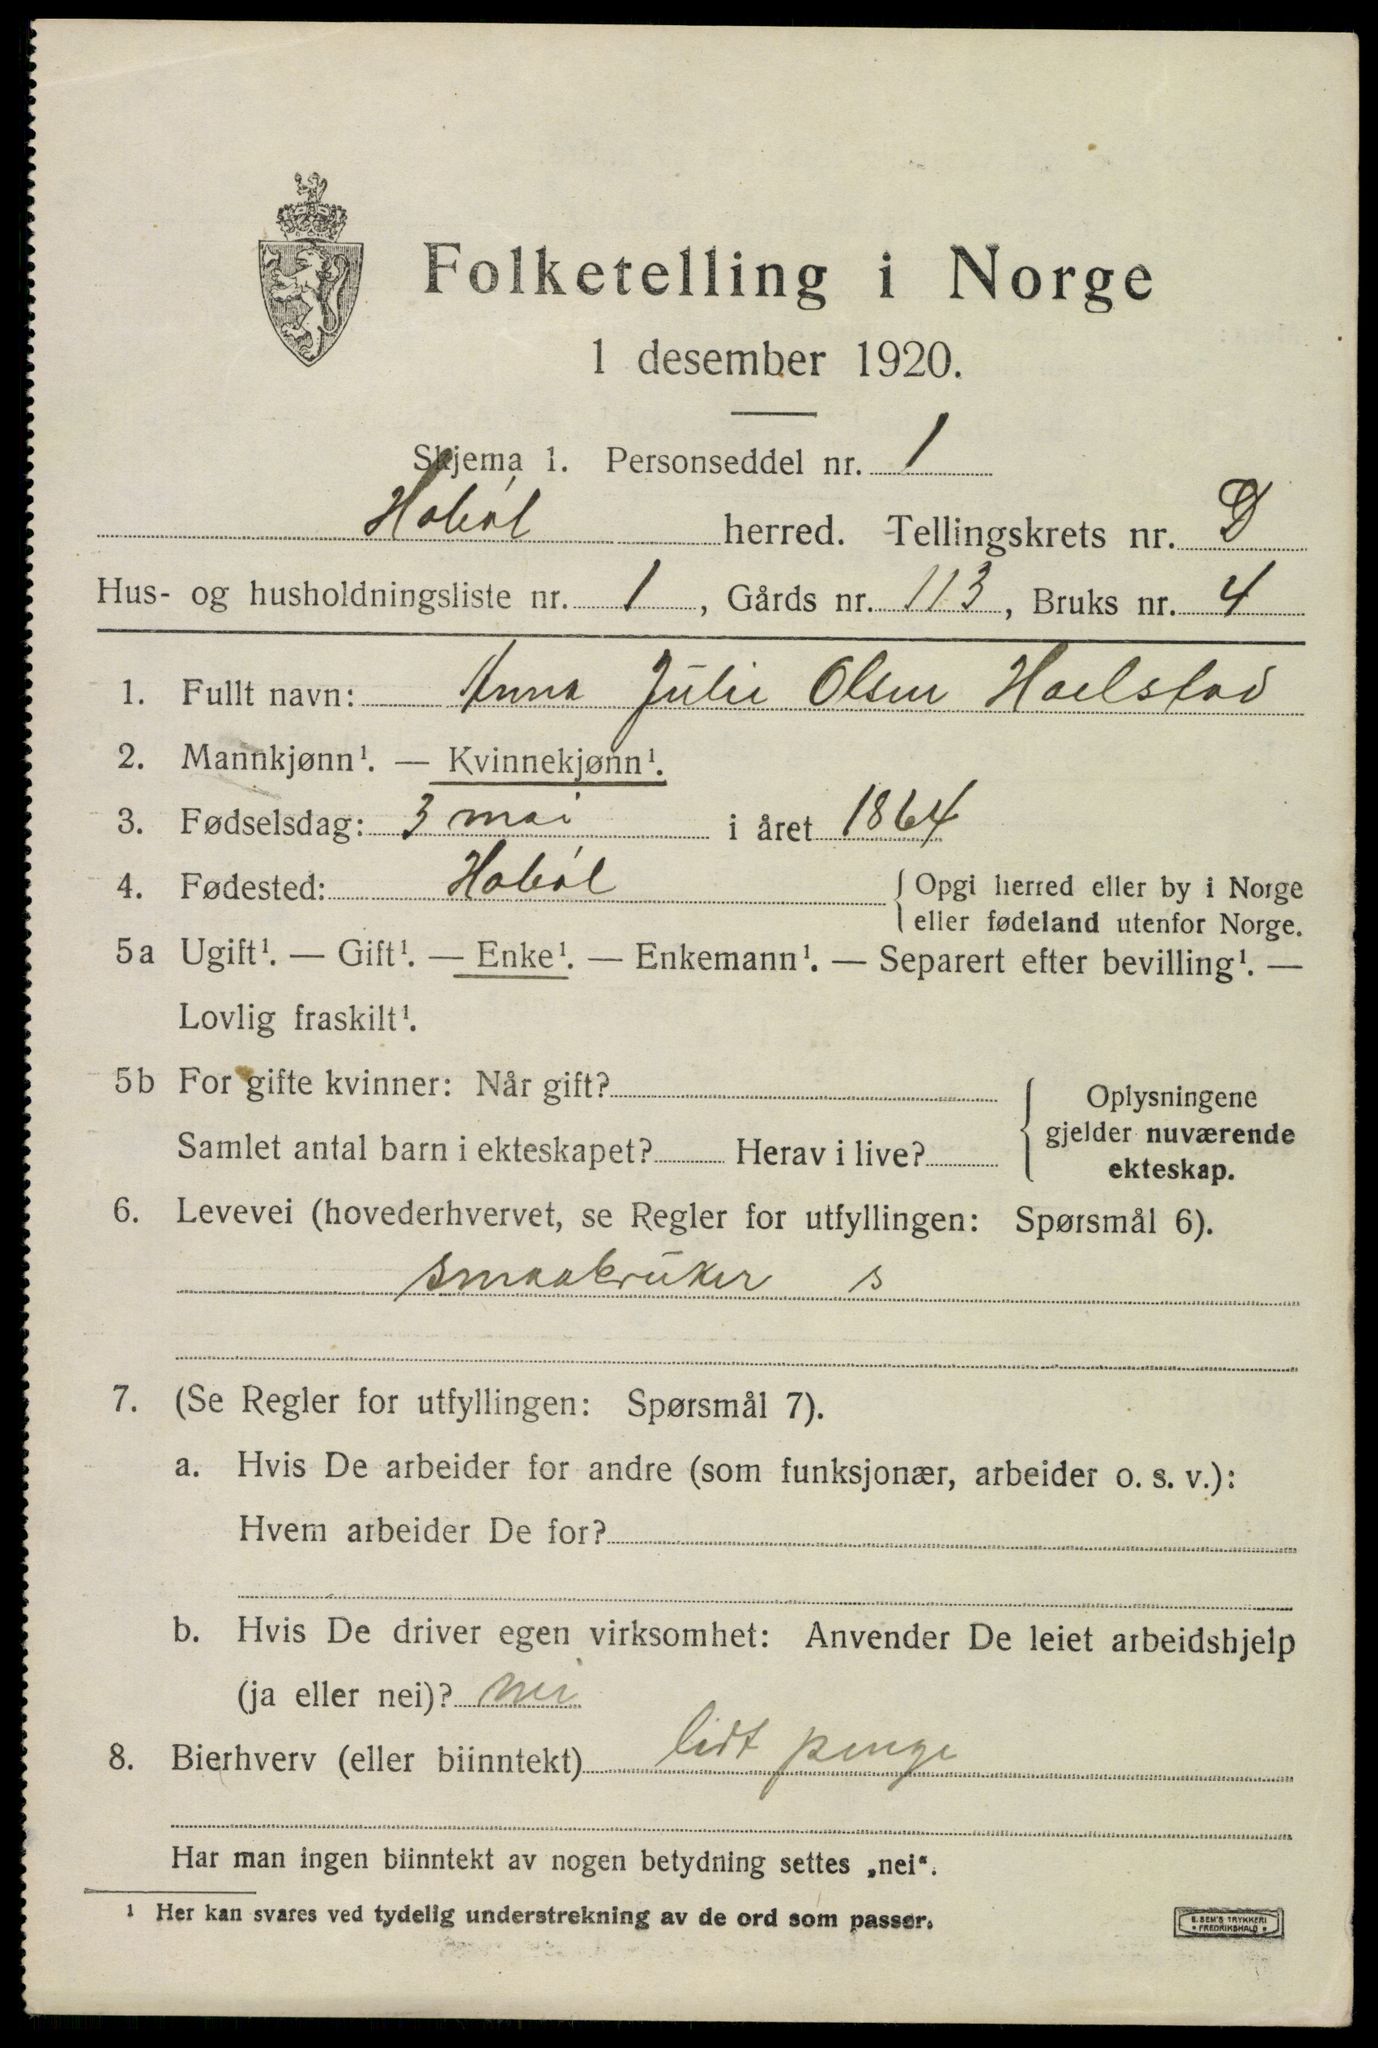 Folketelling i Norge
1 desember 1920.
Skjema 1. Personseddel nr. 1
Hobøl herred. Tellingskrets nr. D
Hus- og husholdningsliste nr. 1, Gårds nr. 113, Bruks nr. 4
1. Fullt navn: Anna Julie Olsen Haelstad
2. Mannkjønn¹. — Kvinnekjønn¹.
3. Fødselsdag: 3 mai i året 1864
4. Fødested: Hobøl { Opgi herred eller by i Norge
eller fødeland utenfor Norge.
5a Ugift¹. — Gift¹. — Enke¹. — Enkemann¹. — Separert efter bevilling¹. —
Lovlig fraskilt¹.
5b For gifte kvinner: Når gift?
Samlet antal barn i ekteskapet? Herav i live?
{ Oplysningene
gjelder nuværende
ekteskap.
6. Levevei (hovederhvervet, se Regler for utfyllingen: Spørsmål 6).
smaabruker s
7. (Se Regler for utfyllingen: Spørsmål 7).
a. Hvis De arbeider for andre (som funksjonær, arbeider o. s. v.):
Hvem arbeider De for?
b. Hvis De driver egen virksomhet: Anvender De leiet arbeidshjelp
(ja eller nei)? nei
8. Bierhverv (eller biinntekt) lidt penge
Har man ingen biinntekt av nogen betydning settes „nei“.
¹ Her kan svares ved tydelig understrekning av de ord som passer.
E. SEM'S TRYKKERI
FREDRIKSHALD